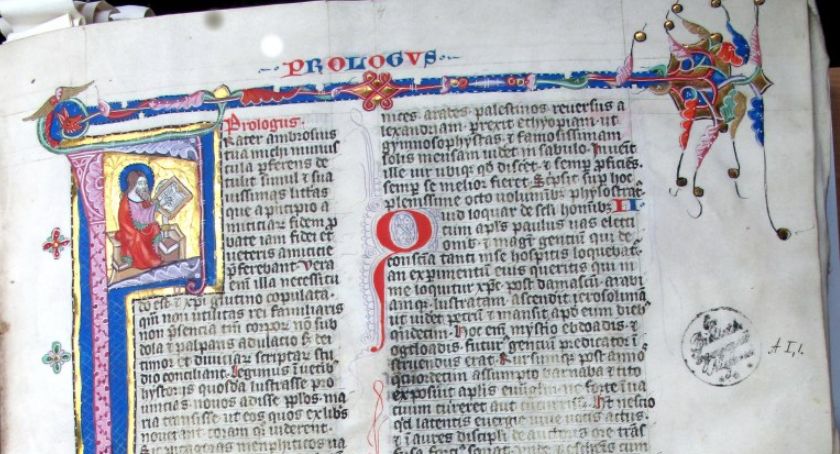 PROLOGVS
Prologus.
rater ambrosius
tua michi munus
cula perferens de
tulit simul et sua
uissimas litteras
que a principio a
miciciarum fidem pro
bate iam fidei et
ueteris amicitie
preferebant. Vera
enim illa necessitu
do est et xpi glutino copulata.
quam non utilitas rei familiaris
non presencia tantum corporum non sub
dola et palpans adulatio sed dei
timor et diuinarum scripturarum stu
dia conciliant. Legimus in ueteribus
hystoriis quosdam lustrasse pro
uincias. nouos adisse populos. ma
ria transisse. ut eos quos ex libris
nouerant coram quoque uiderent.
Sic pitagoras memphiticos ua
mites. arabes. palestinos. reuersus a
lexandriam. perrexit ethyopiam. ut
gymnosophystas et famosissimam
solis mensam uideret in sabulo. Inuenit
ille uir ubique quod disceret. et semper proficiens.
semper se melior fieret. Scripsit super hoc
plenissime octo uoluminibus phylostratus.
II
Quid loquar de seculi hominibus.
cum apostolus paulus uas electi
onis. et magister gentium qui de
conscientia tanti in se hospitis loqueba
tur
me loquitur xpc. post damascum. arabi
amque lustratam. ascendit ierosolima
ut uideret petrum et mansit apud eum diebus
quindecim. Hoc enim mysterio ebdoadis et
ogdoadis. futurus gentium predicator in
struendus erat. Rursumque post annos
quatuordecim assumpto barnaba et tito
exposuit apostolis euangelium. ne forte in ua
cuum curreret aut cucurrisset. Habet nescio
quid latentis energie uiue uocis actus.
et in aures discipuli de auctoris ore trans
fusa forcius sonat.
A I, 1.